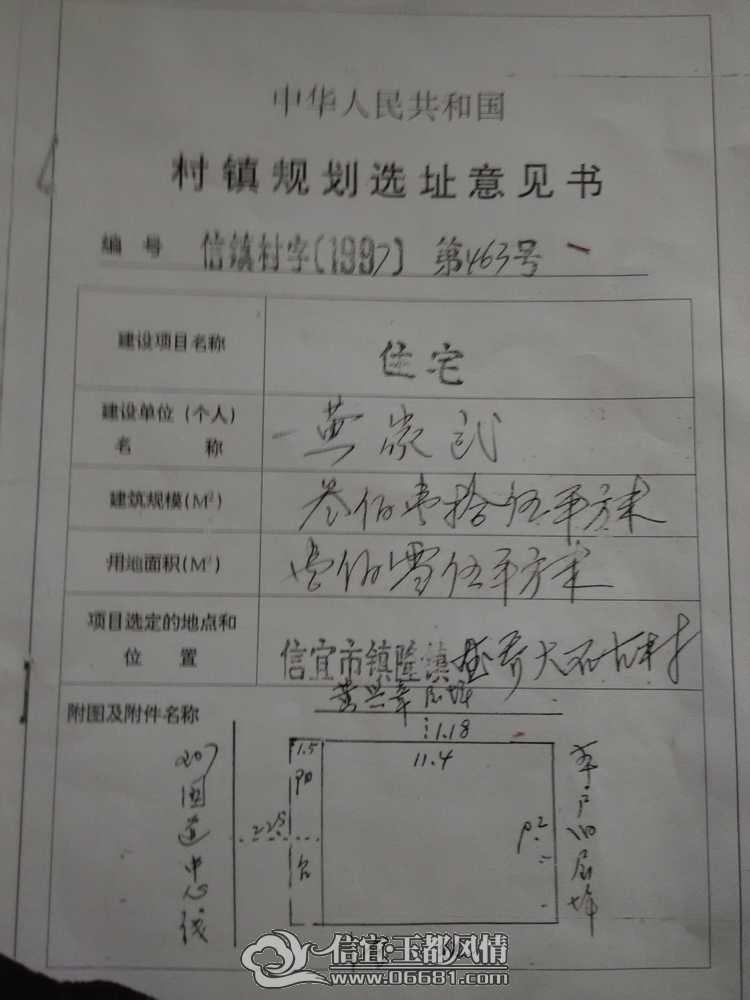 中华人民共和国
村镇规划选址意见书
编 号 信镇村字(1997) 第463号
建设项目名称 住宅
建设单位(个人)
名 称
建筑规模(M²) 叁佰壹拾伍平方米
用地面积(M²) 壹佰零伍平方米
项目选定的地点和
位 置 信宜市镇隆镇
附图及附件名称
1.18
1.5
11.4
阳
台
207国道中心线
9.2
本户旧屋
信宜·玉都风情
www.06681.com